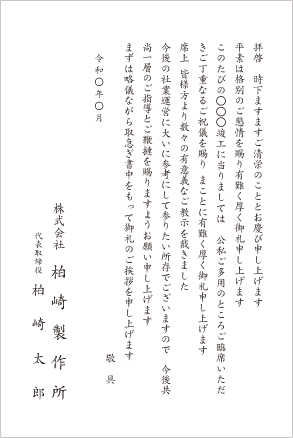 拝啓　時下ますますご清栄のこととお慶び申し上げます
平素は格別のご懇情を賜り有難く厚く御礼申し上げます
このたびの〇〇〇竣工に当りましては　公私ご多用のところご臨席いただ
きご丁重なるご祝儀を賜り　まことに有難く厚く御礼申し上げます
席上　皆様方より数々の有意義なご教示を戴きました
今後の社業運営に大いに参考にして参りたい所存でございますので　今後共
尚一層のご指導とご鞭撻を賜りますようお願い申し上げます
まずは略儀ながら取急ぎ書中をもって御礼のご挨拶を申し上げます
敬具
令和〇年〇月
株式会社　柏崎製作所
代表取締役　柏崎太郎